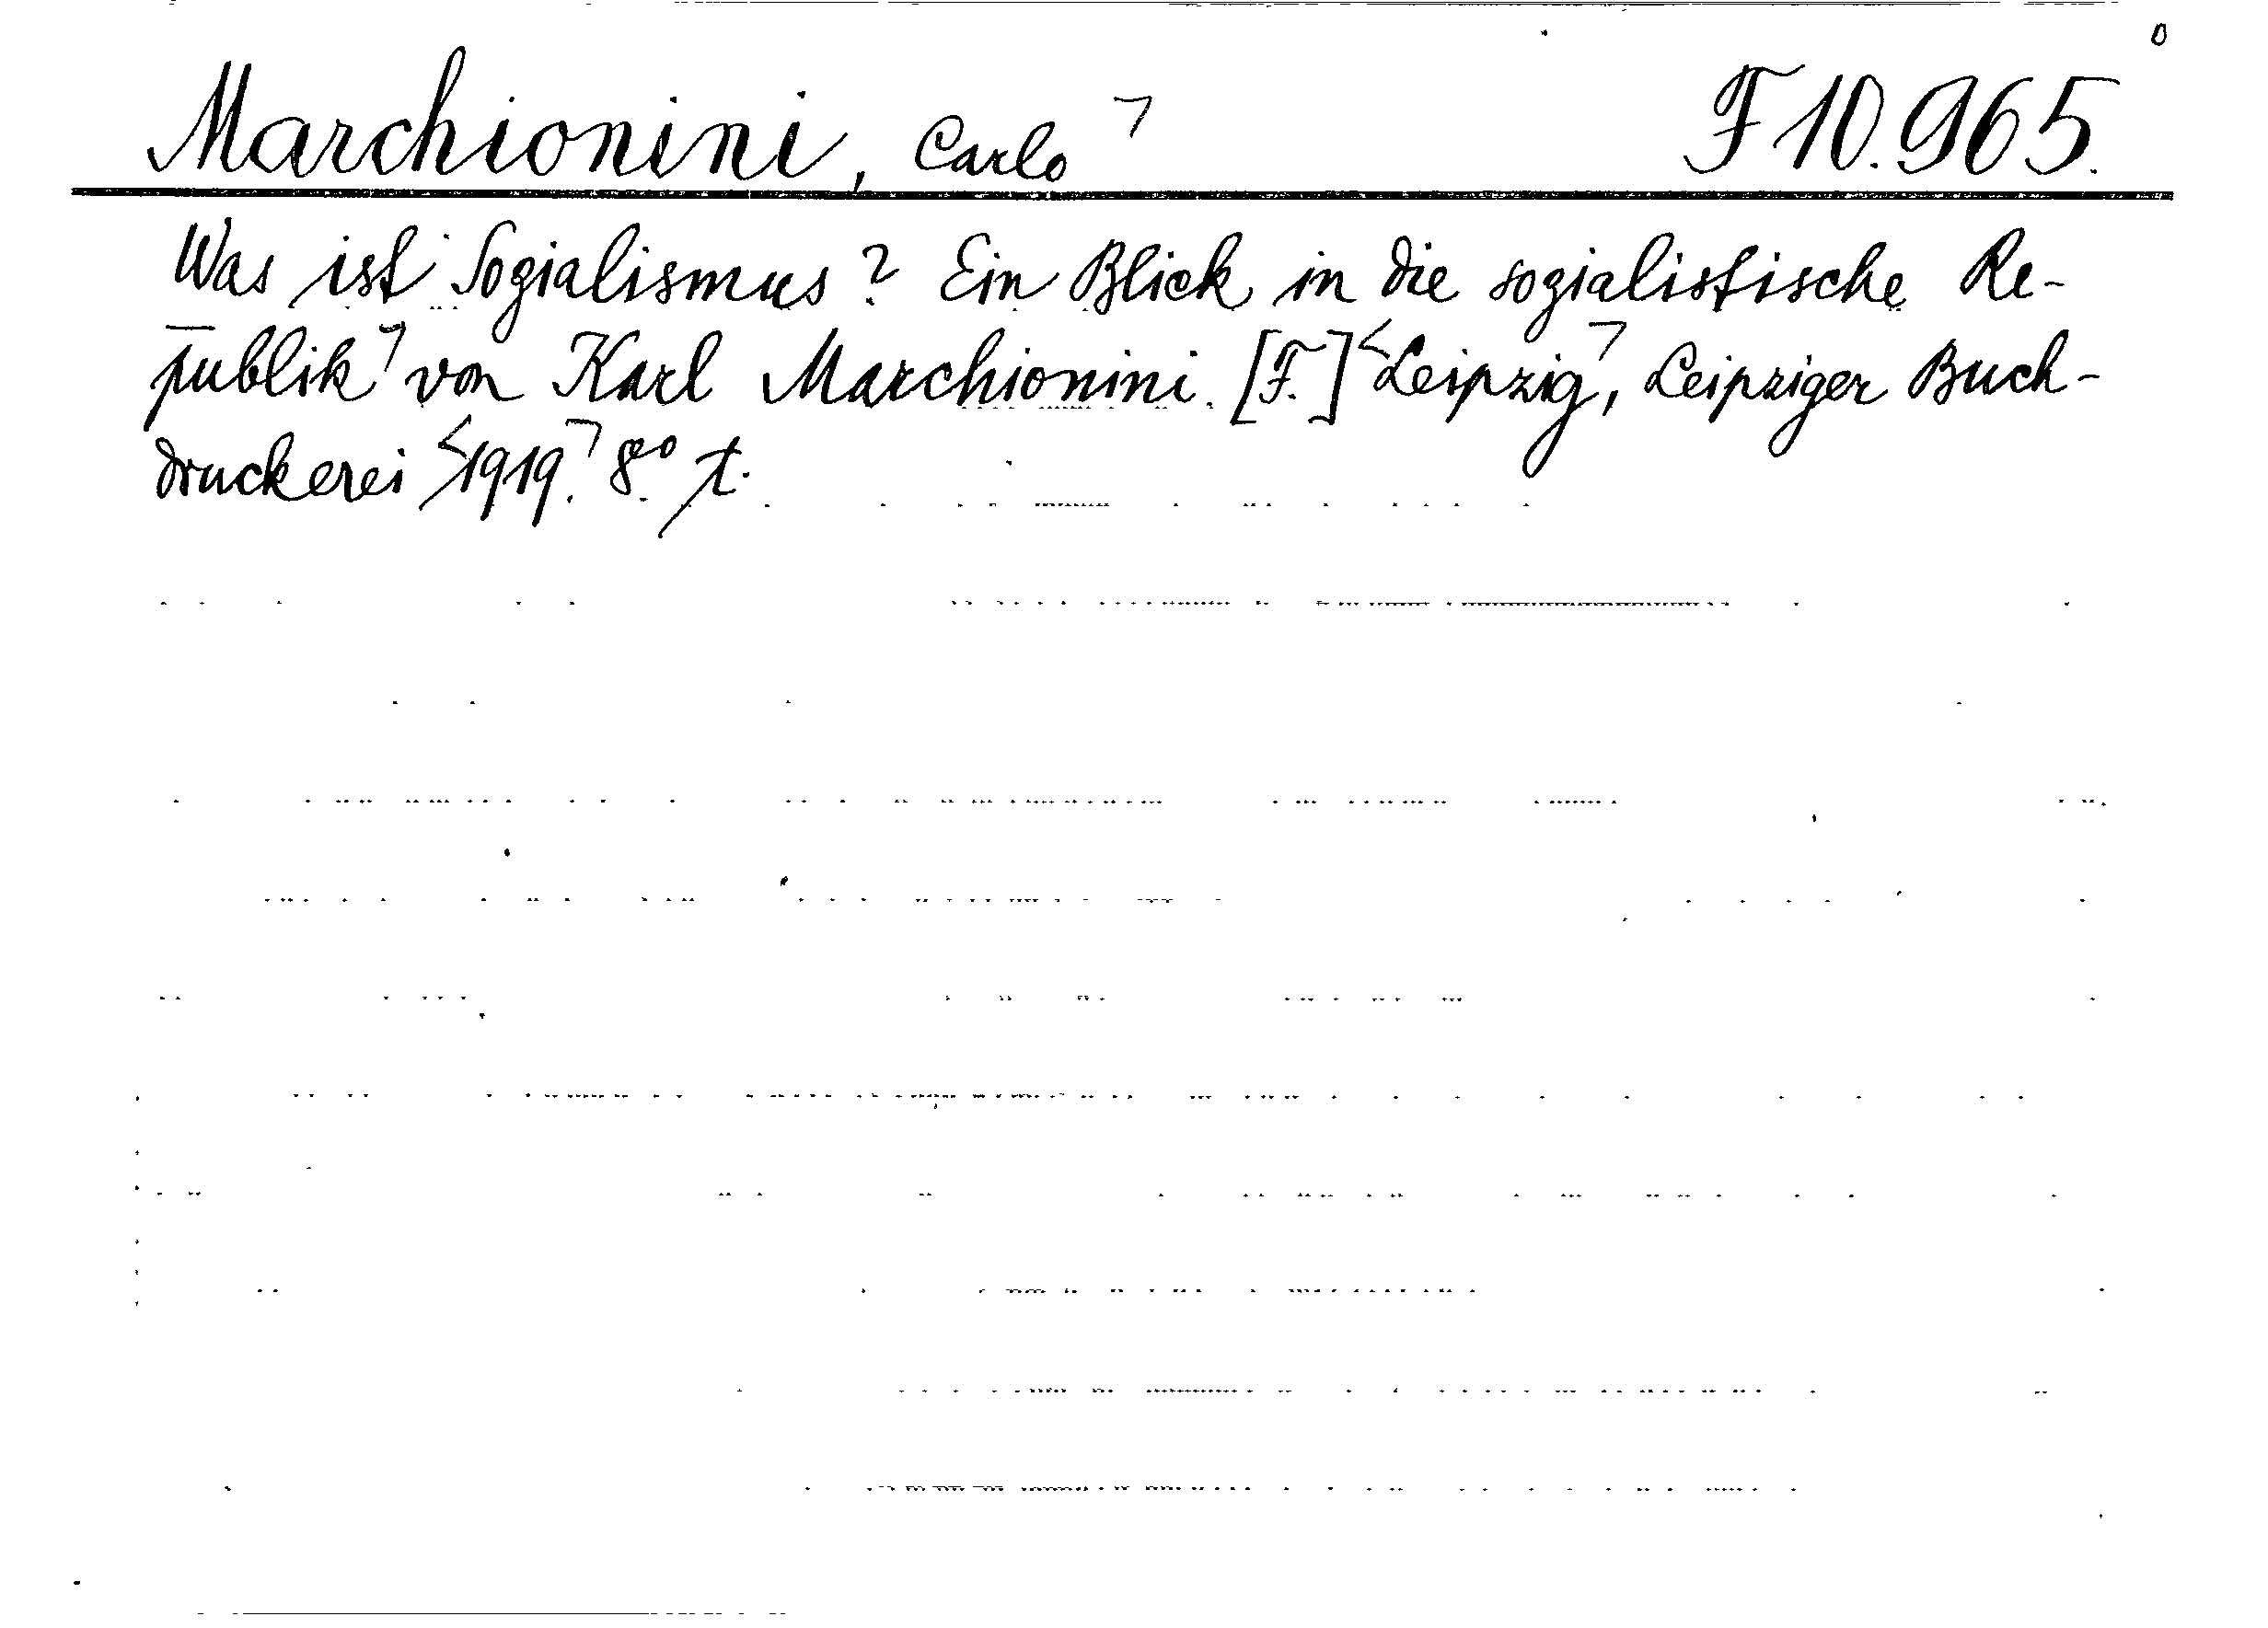 Marchionini, Carlo F 10.965.
Was ist Sozialismus? Ein Blick in die sozialistische Re-
publik von Karl Marchionini. [F.] Leipzig, Leipziger Buch-
druckerei 1919. 8° t.